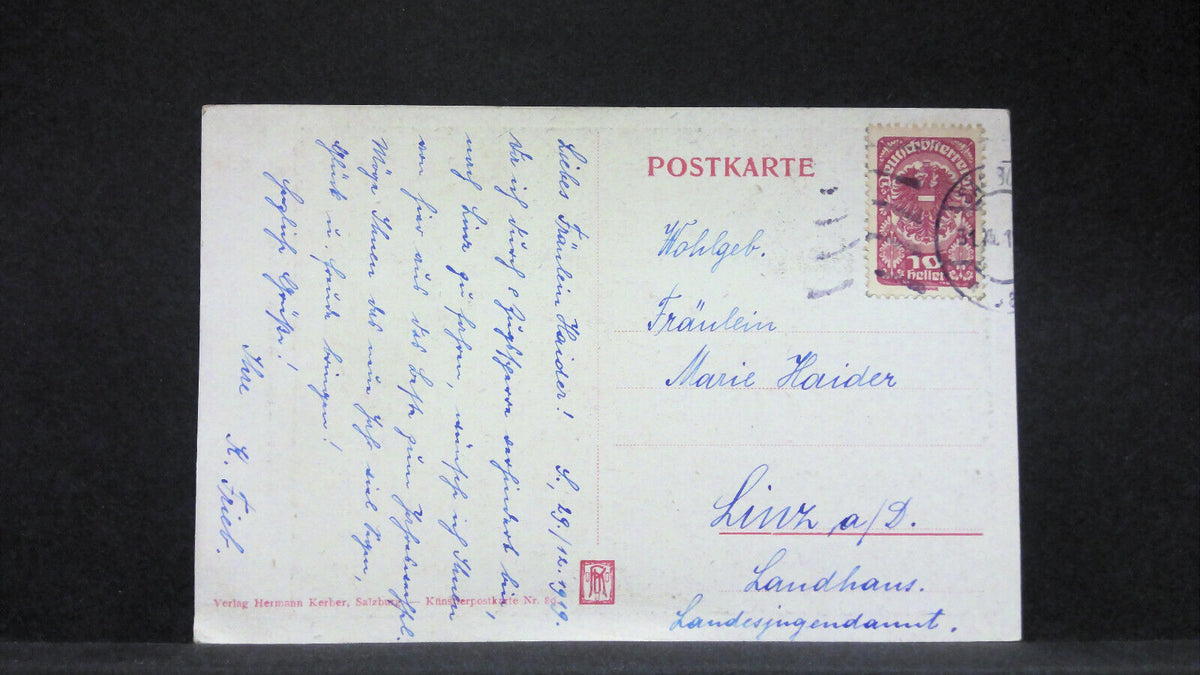 Liebes Fräulein Haider! S., 29./12. 1919.
Da ich durch Zugssperre verhindert bin,
nach Linz zu fahren, wünsche ich Ihnen
von hier aus das beste zum Jahreswechsel.
Möge Ihnen das neue Jahr viel Segen,
Glück u. Freude bringen!
Herzliche Grüße!
Ihre
K. Frieb.
POSTKARTE
Deutschösterreich
10
Heller
Wohlgeb.
Fräulein
Marie Haider
Linz a/D.
Landhaus.
Landesjugendamt.
Verlag Hermann Kerber, Salzburg — Künstlerpostkarte Nr. 89